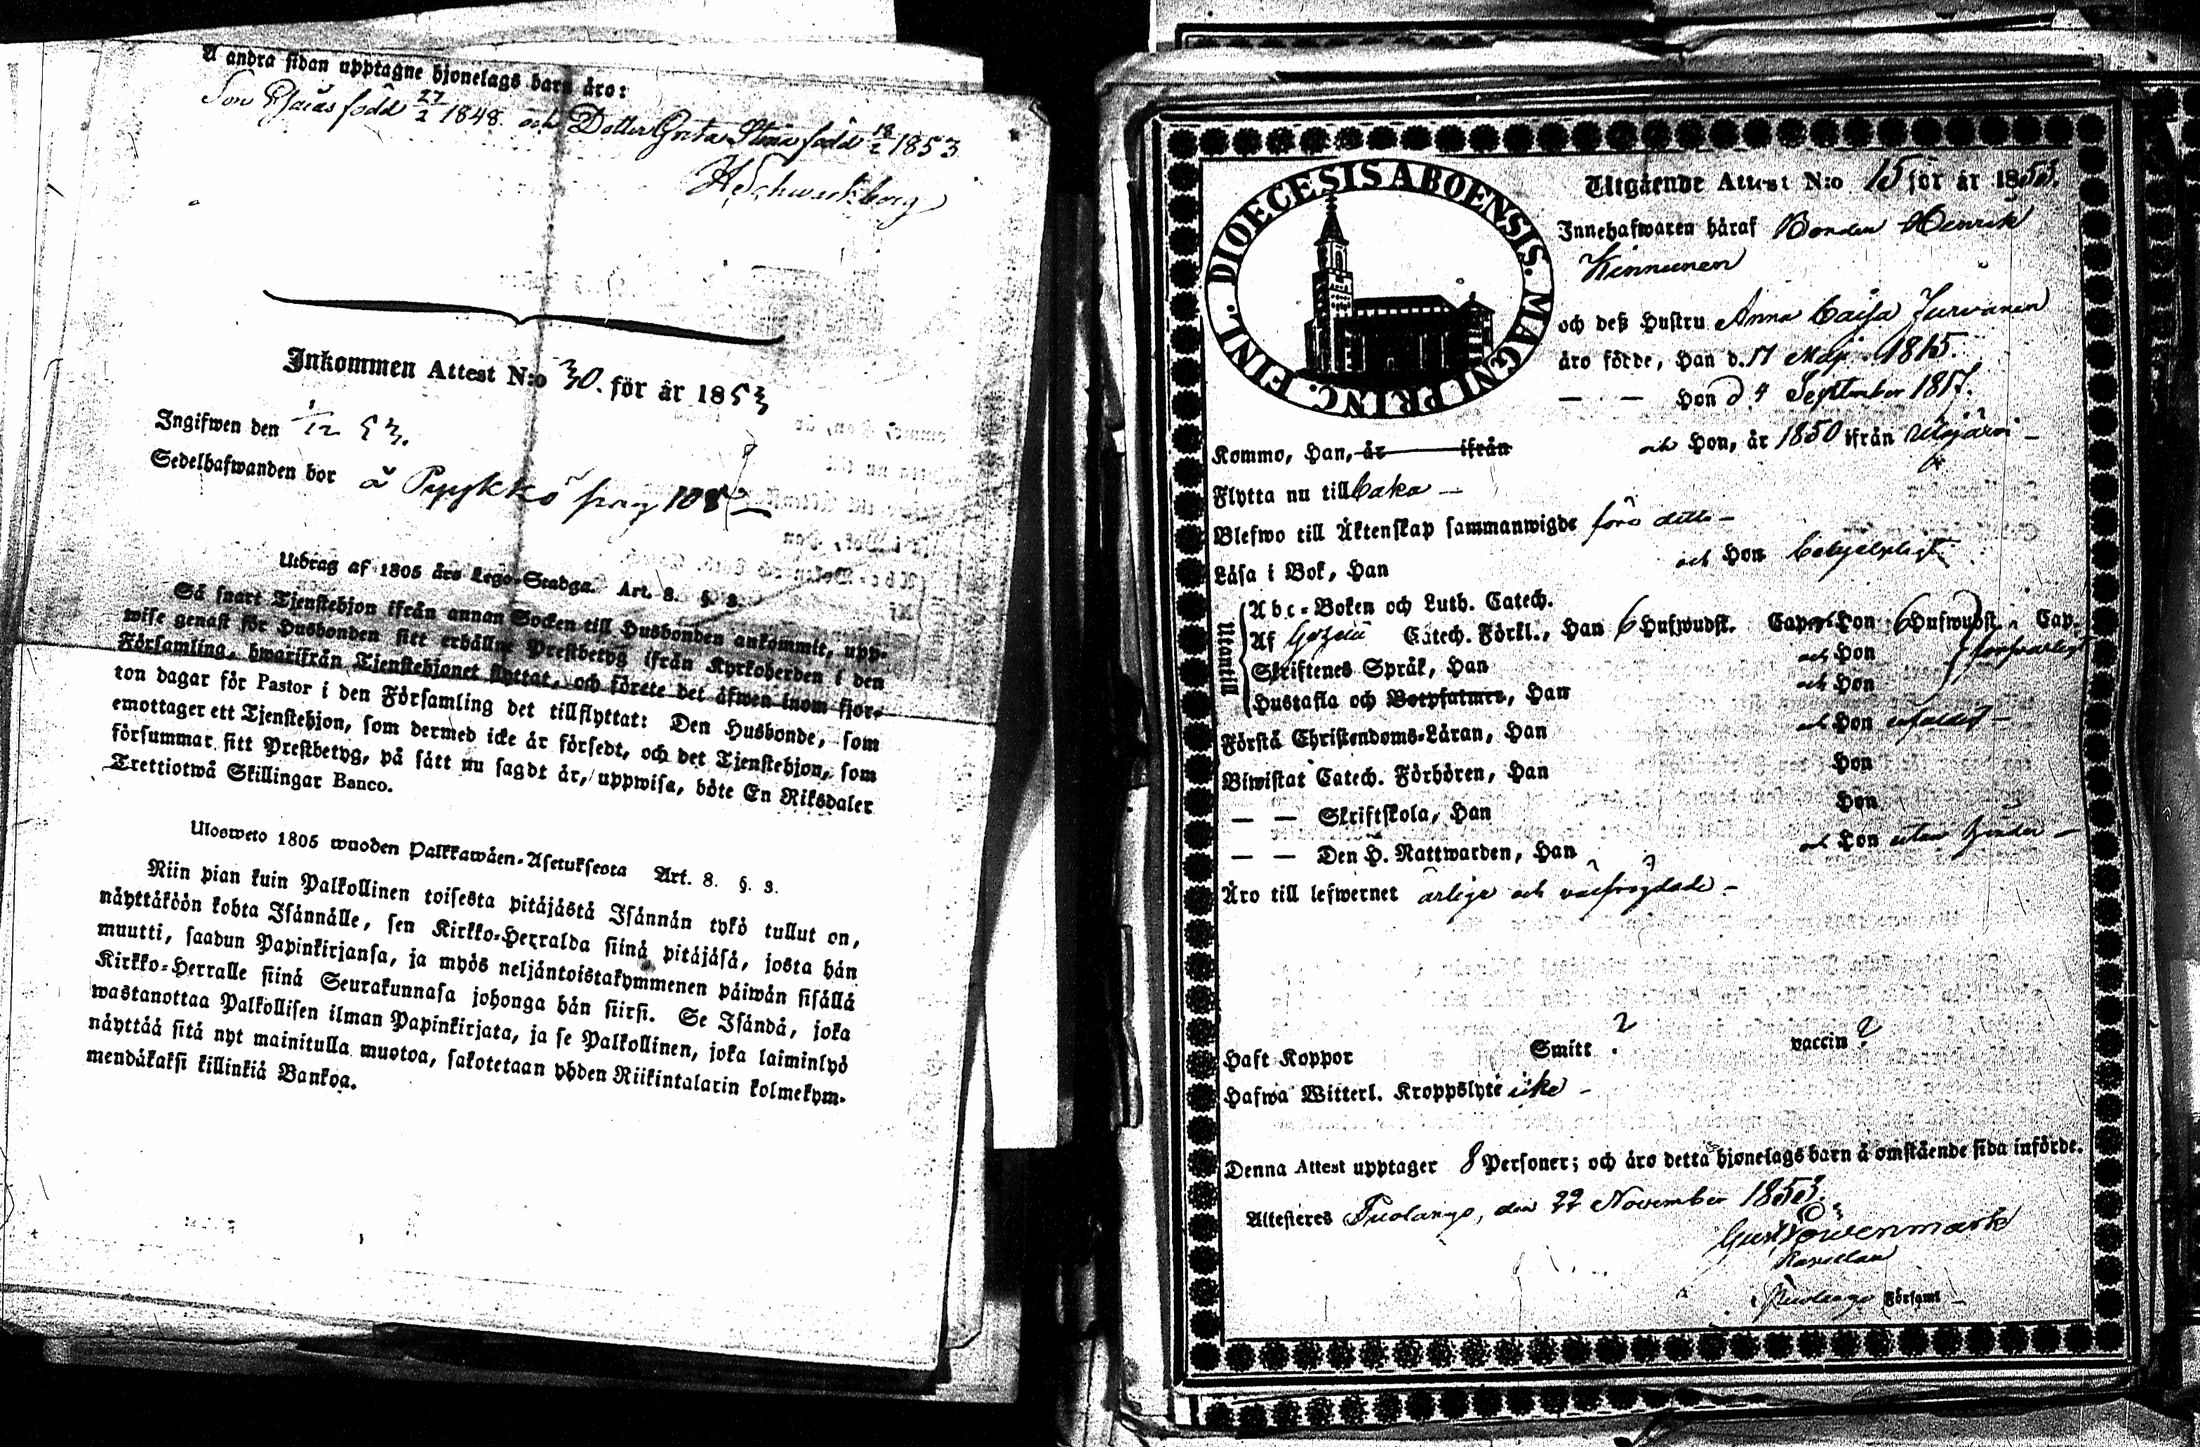 Å andra sidan upptagne hjonelags barn äro:
Son Esaias född 27/2 1848. och Dotter Greta Stina född 18/2 1853
Inkommen Attest N:o 30. för år 1853
Ingifwen den 1/12 53.
Sedelhafwanden bor å Pyykkö pag 108
Utdrag af 1805 års Lego-Stadga. Art. 8. §. 3.
Så snart Tjenstehjon ifrån annan Socken till Husbonden ankommit, upp-
wise genast för Husbonden sitt erhållne Prestbetyg ifrån Kyrkoherden i den
Församling, hwarifrån Tjenstehjonet flyttat, och förete det äfwen inom fjor-
ton dagar för Pastor i den Församling det tillflyttat: Den Husbonde, som
emottager ett Tjenstehjon, som dermed icke är försedt, och det Tjenstehjon, som
försummar sitt Prestbetyg, på sätt nu sagdt är, uppwisa, böte En Riksdaler
Trettiotwå Skillingar Banco.
Ulosweto 1805 wuoden Palkkawäen-Asetuksesta Art. 8. §. 3.
Niin pian kuin Palkollinen toisesta pitäjästä Isännän tykö tullut on,
näyttäköön kohta Isännälle, sen Kirkko-Herralda siinä pitäjäsä, josta hän
muutti, saadun Papinkirjansa, ja myös neljäntoistakymmenen päiwän sisällä
Kirkko-Herralle siinä Seurakunnasa johonga hän siirsi. Se Isändä, joka
wastanottaa Palkollisen ilman Papinkirjata, ja se Palkollinen, joka laiminlyö
näyttää sitä nyt mainitulla muotoa, sakotetaan yhden Riikintalarin kolmekym-
mendäkaksi killinkiä Bankoa.
DIOECESIS ABOENSIS. MAGNI PRINC. FINL.
Utgående Attest N:o 15 för år 1853.
Innehafwaren häraf Bonden Henrik
Kinnunen
och deß Hustru Anna Caisa Jurvanen
äro födde, Han d. 17 Maji 1815.
— — Hon d. 4 September 1817.
Kommo, Han, är ifrån och Hon, år 1850 ifrån
Flytta nu till
Blefwo till Äktenskap sammanwigde före detta —
Läsa i Bok, Han och Hon behjelpligt
Utantill
Abc-Boken och Luth. Catech.
Af Catech. Förkl., Han 6 Hufwudst. Cap. Hon 6 Hufwudst. Cap.
Skriftenes Språk, Han och Hon försvarligt
Hustafla och Botpsalmer, Han och Hon
Förstå Christendoms-Läran, Han och Hon
Biwistat Catech. Förhören, Han Hon
— — Skriftskola, Han Hon
— — Den H. Nattwarden, Han och Hon utan hinder —
Äro till lefwernet ärlige och välfrejdade —
Haft Koppor Smitt ? vaccin ?
Hafwa Witterl. Kroppslyte icke —
Denna Attest upptager 8 Personer; och äro detta hjonelags barn å omstående sida införde.
Attesteres Puolango, den 22 November 1853.
Gust. Löwenmark
Kapellan
i Puolango Församl —